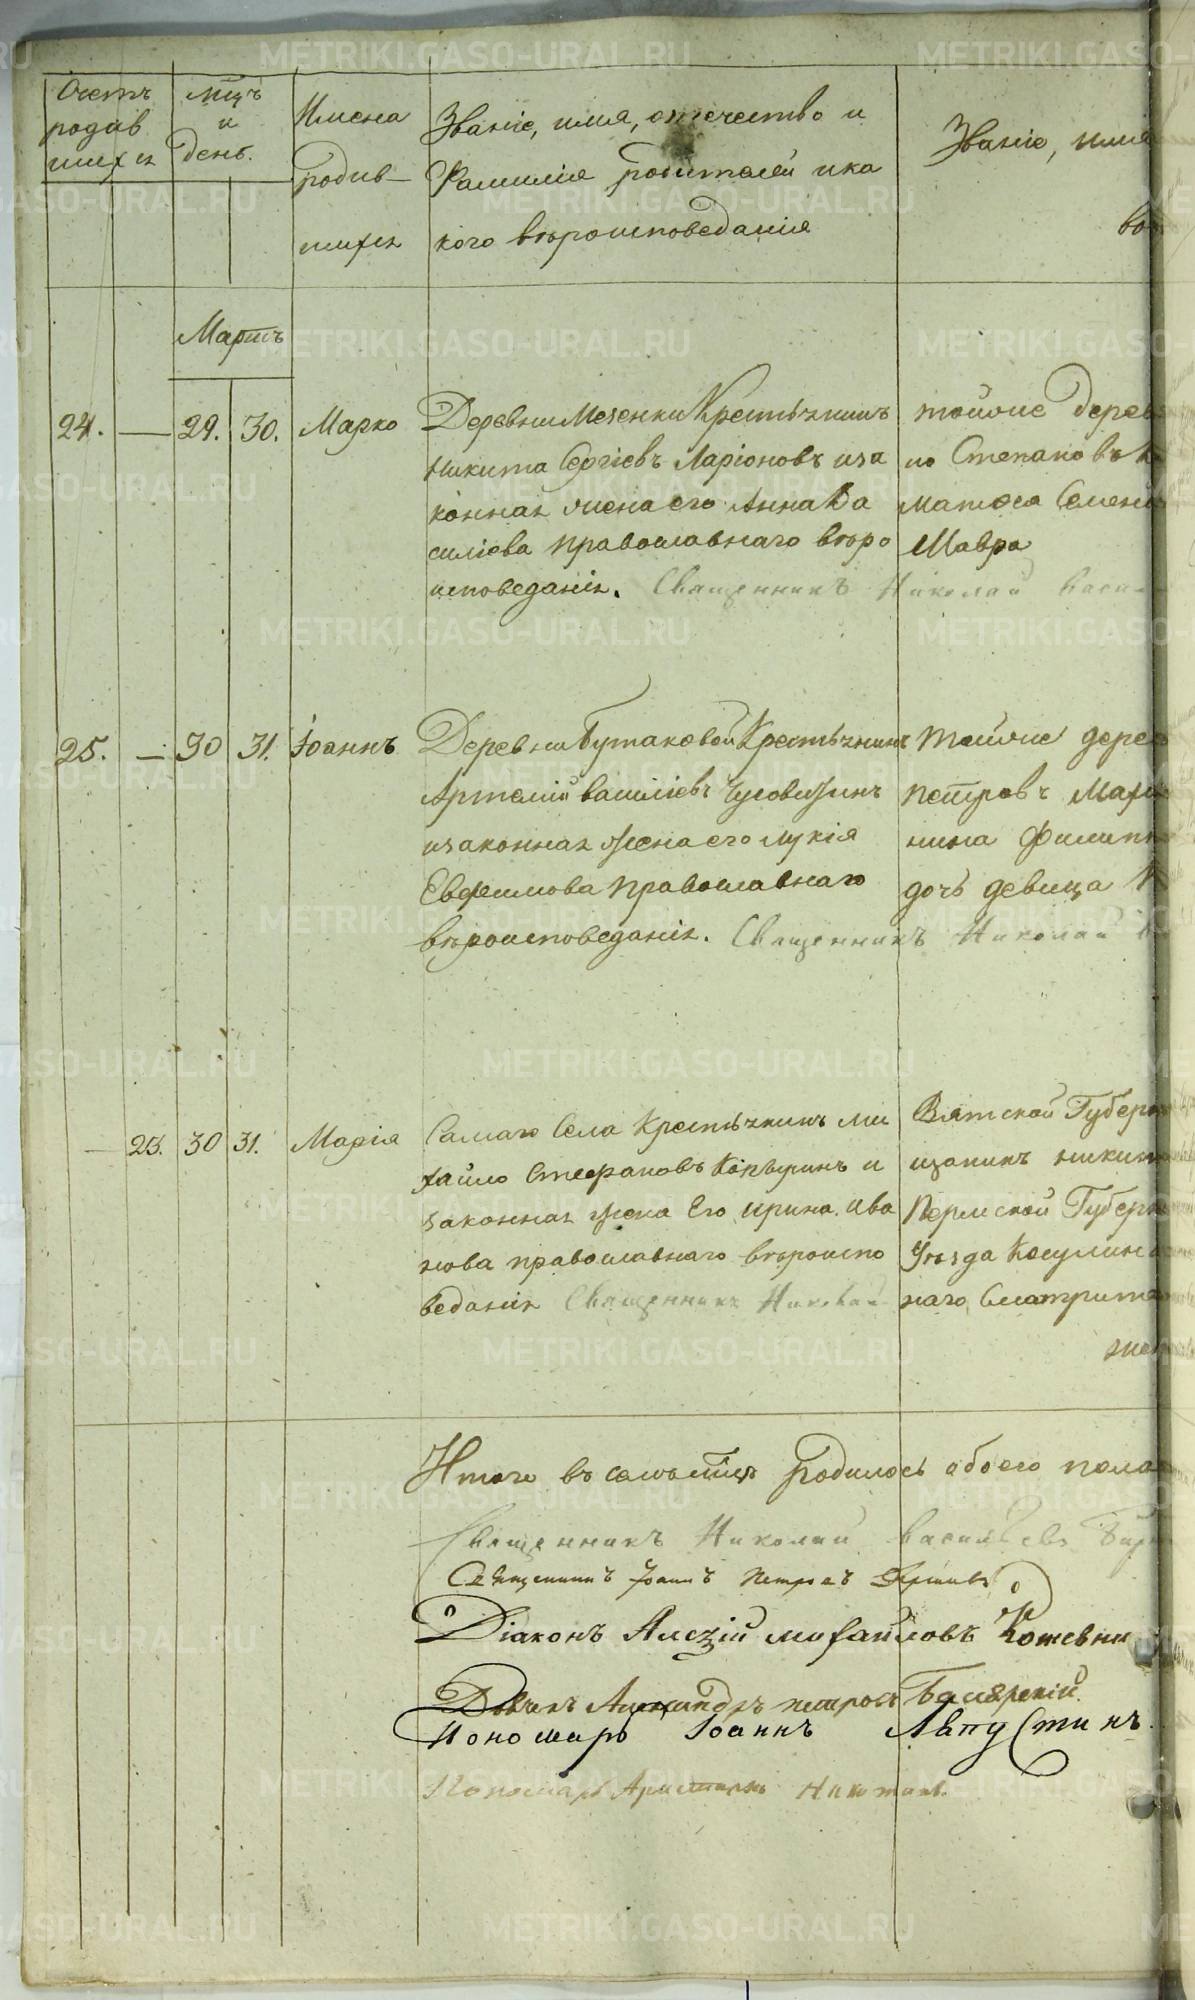 Счетъ родив шихся
мцъ и день.
Имена родив– шихся
Званіе, имя, отечество и
Фамилія родителей и ка
кого вѣроисповеданія
Званіе, имя
во
Мартъ
24. — 29. 30. Марко
Деревни Мезенки Крестьянинъ
Никита Сергіевъ Ларіоновъ и за
конная жена его Анна Ва
силіева православнаго вѣро
исповеданія. Священникъ Николай Васи
тойже дерев
по Степановъ
Матѳея Семен
Мавра
25. — 30 31. Іоаннъ
Деревни Бутаковой Крестьянинъ
Артемій Василіевъ
и законная жена его Лукія
Евфимова православнаго
вѣроисповеданія. Священникъ Николай
тойже дерев
Петровъ
нина Филипп
дочь девица
— 23. 30 31. Марія
Самаго Села Крестьянинъ Ми
хайло Стефановъ и
законная жена Его Ирина Ива
нова православнаго вѣроиспо
веданія Священникъ Николай
Вятской Губерн
щанинъ Никит
Пермской Губерн
Уѣзда Косулин
наго Смотрите
жен
Итого въ семъ мцѣ родилось обоего пола
Священникъ Николай Васильевъ
Священникъ Іоаннъ Петровъ
Діаконъ Алезій Михайловъ Кожевни
Дьячекъ Александръ Петровъ
Пономарь Іоаннъ Авгу Стинъ.
Пономарь
METRIKI.GASO-URAL.RU